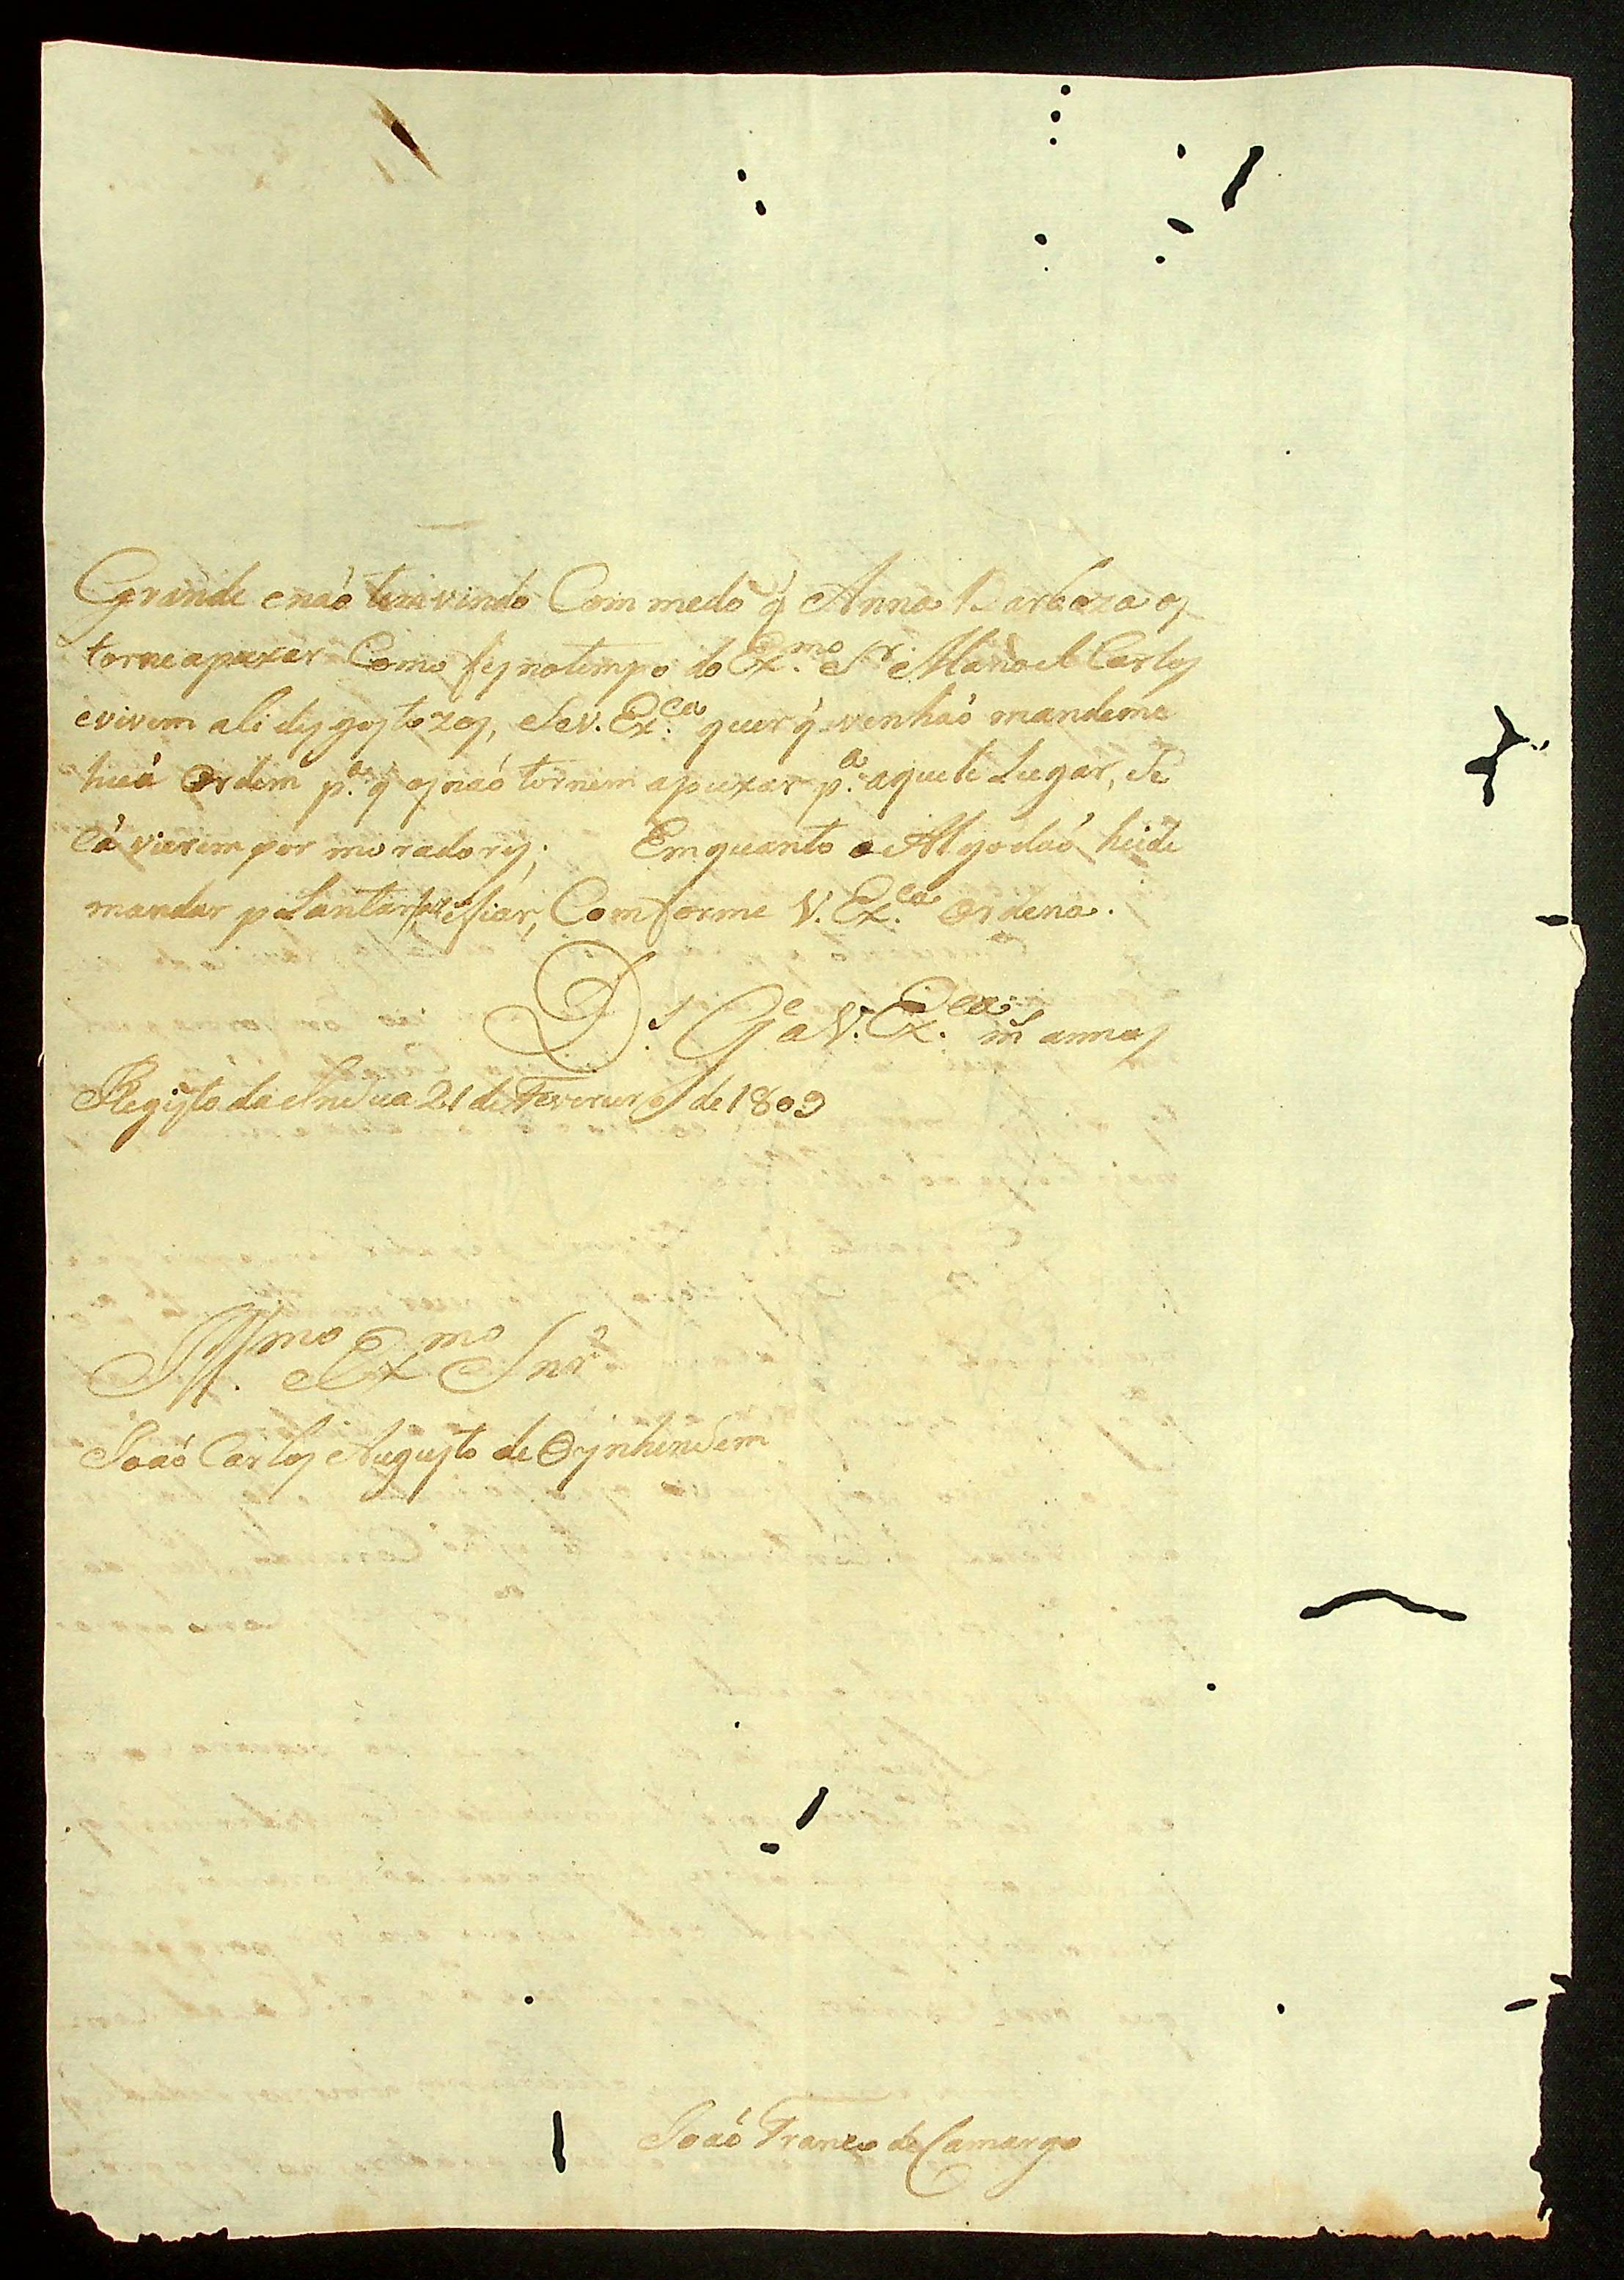 Grande enaó tem vindo Com medo q̃ Anna Barboza os
torne apuxar Como fes notempo do Ex.mo Sr. Manoel Carlos
evivem ali disgostozos, Sev. Ex.ca quer q̃ venhaó mandeme
huã Ordem p.a q̃ osnaó tornem apuxar p.a aquele Lugar, Se
Cá vierem por moradores; Emquanto o Algodaó heide
mandar palantar, Comforme V. Ex.ca Ordena.
D.s G.e a V. Ex.cia m̃ annos
Registo da Indua 21 de Fevereiro de 1809
Ill.mo Ex.mo Snr.
Joaó Carlos Augusto de Oynhindem
Joaó Franco de Camargo